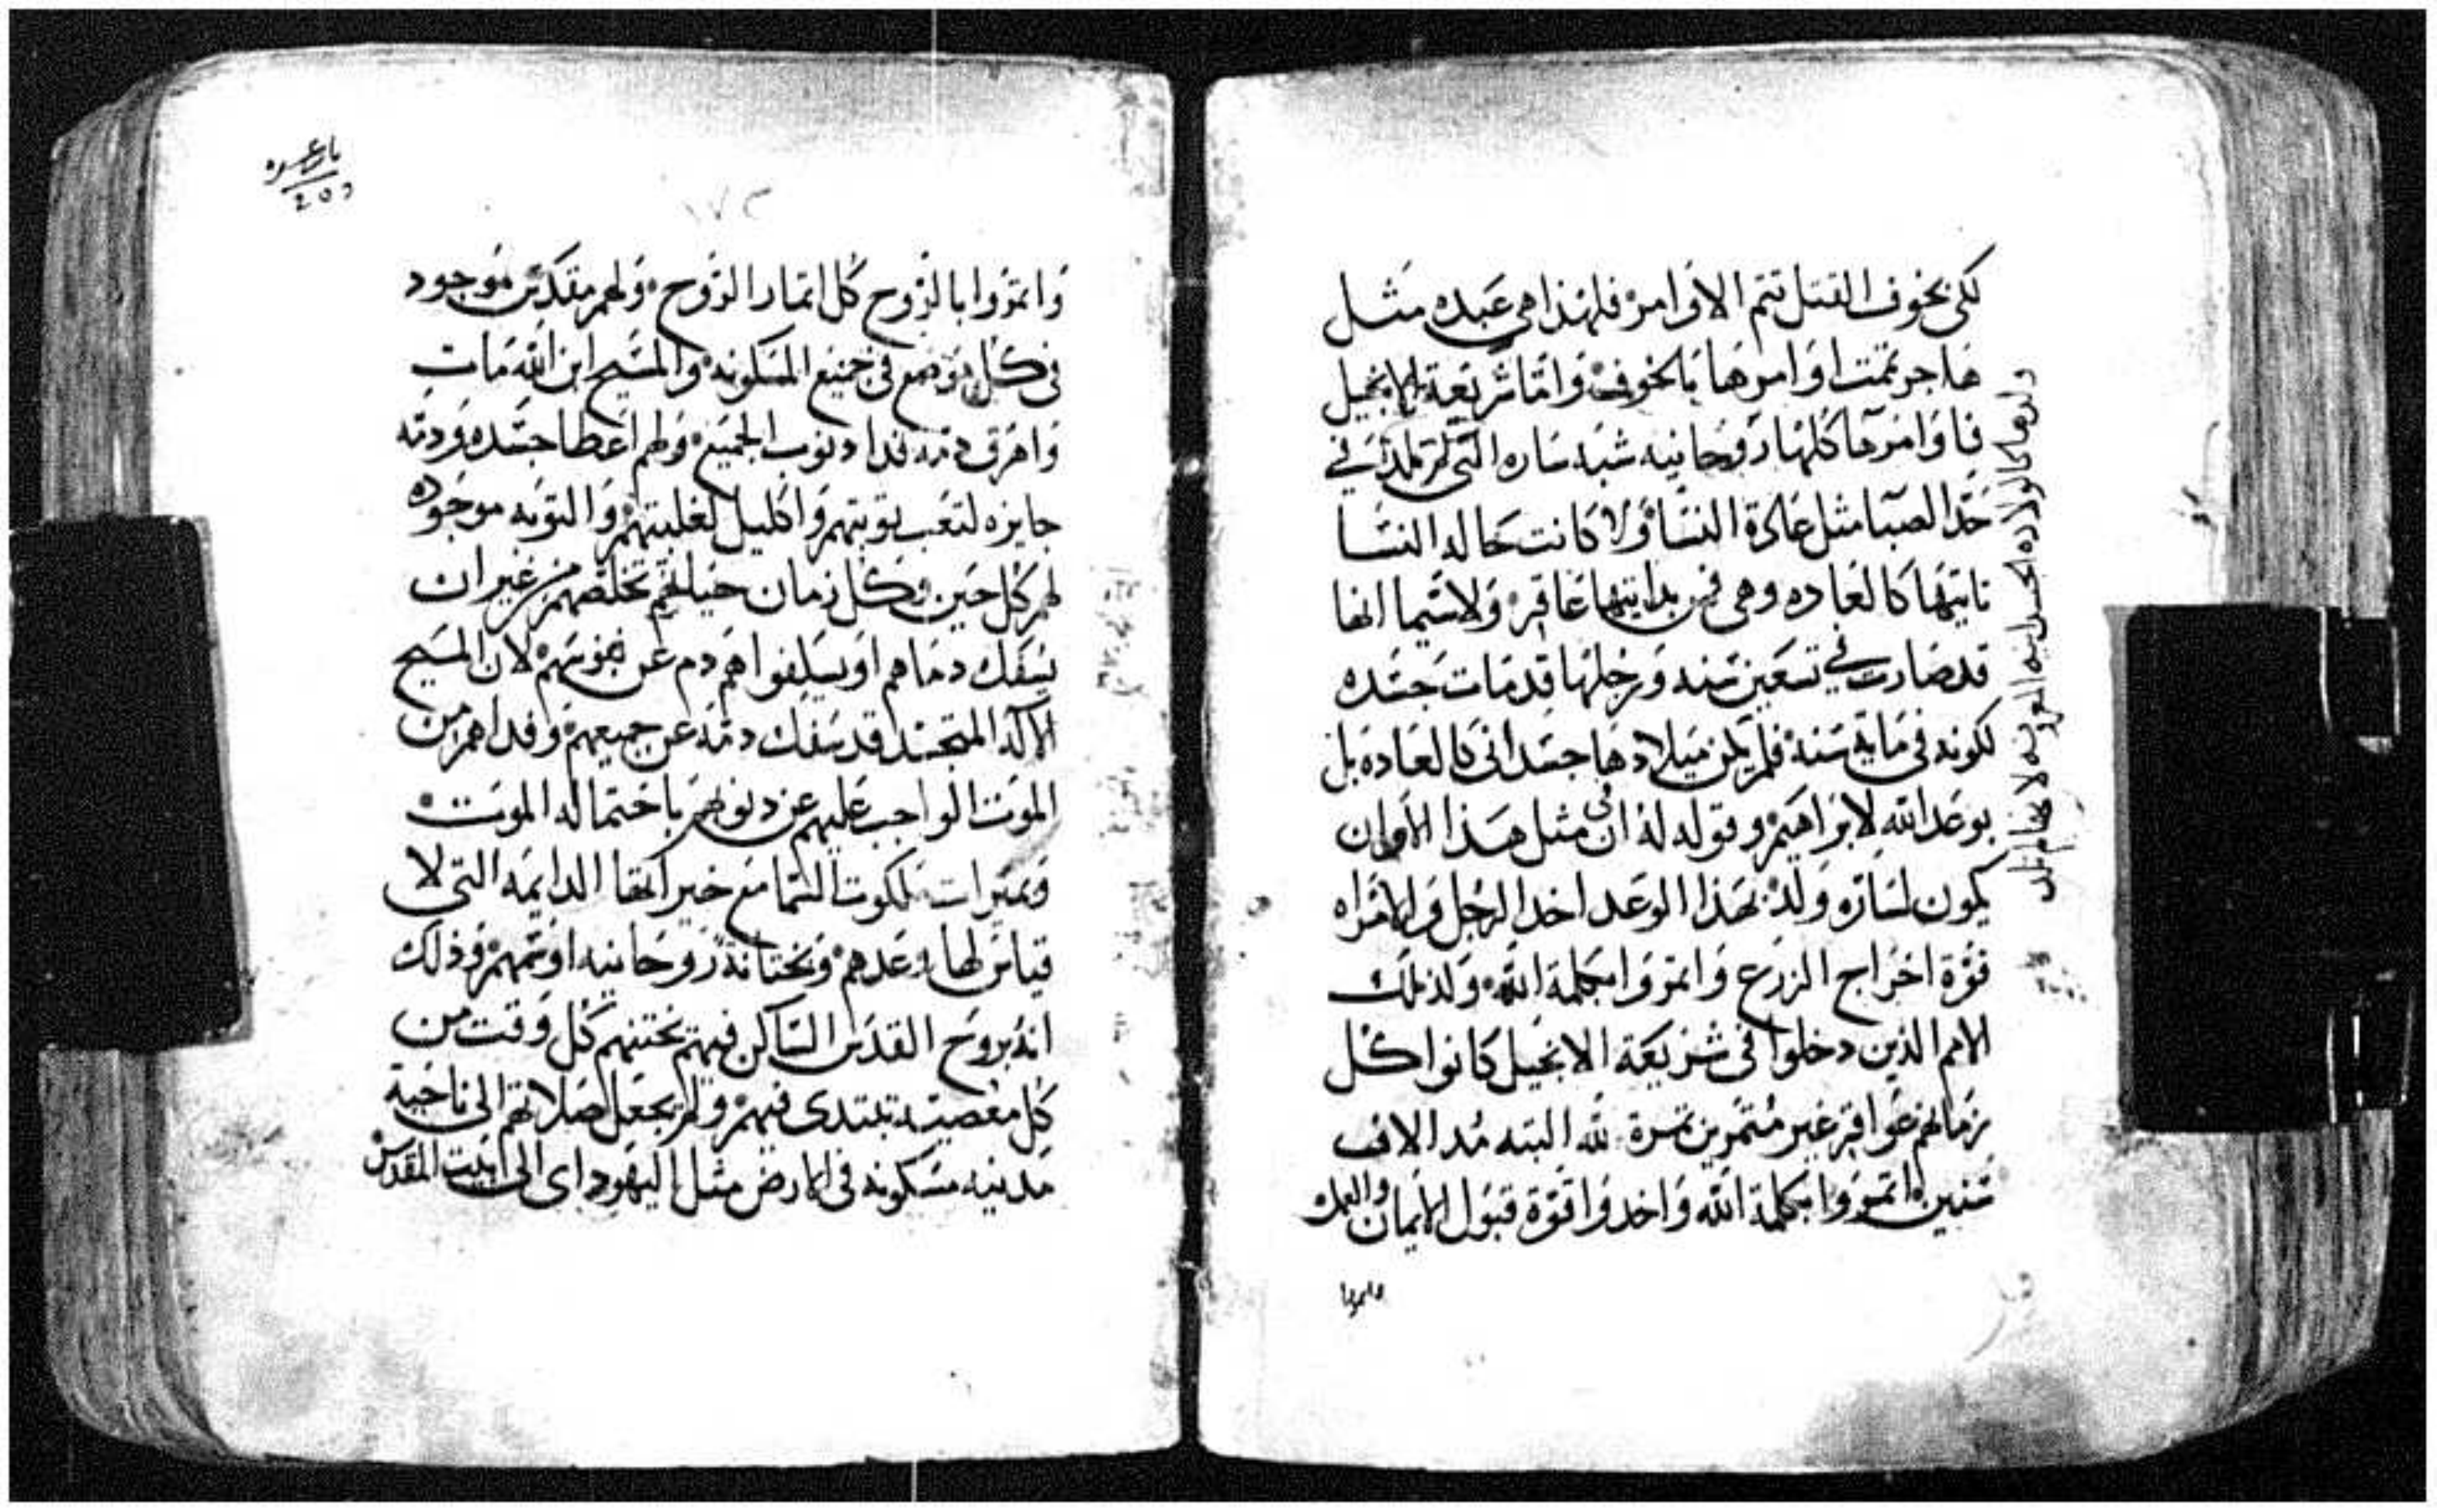 لكي بخوف القتل تتم الاوامر فلهذا هي عبده مثل
هاجر تمت اوامرها بالخوف واما شريعة الانجيل
فاوامرها كلها روحانيه شبه ساره التي لم تلد في
حد الصبا مثل عادة النسا ولا كانت حاله النسا
تاتيها كالعاده وهي من بدايتها عاقر ولاسيما انها
قد صارت في تسعين سنه ورجلها قد مات جسده
لكونه في ماية سنه فلم يكن ميلادها جسداني كالعاده بل
بوعد الله لابراهيم وقوله له ان في مثل هذا الاوان
يكون لساره ولد بهذا الوعد اخد الرجل والامراه
قوة اخراج الزرع واتمروا بكلمة الله ولذلك
الامم الذين دخلوا في شريعة الانجيل كانوا كل
زمانهم عواقر غير متمرين تمرة لله البته مد الاف
سنين اتمروا بكلمة الله واخدوا قوة قبول الايمان
ولدها كالولاده
واتمروا بالروح كل اتمار الروح ولهم مقدس موجود
في كل موضع في جميع المسكونه والمسيح ابن الله مات
واهرق دمه فدا دنوب الجميع ولهم اعطا جسده ودمه
جايزه لتعب توبتهم واكليل لغلبتهم والتوبه موجوده
لهم كل حين وكل زمان حياتهم تخلصهم من غير ان
يسفك دماهم او يسلفوا هم دم عن نفوسهم لان المسيح
الاله المتجسد قد سفك دمه عن جميعهم وفداهم من
الموت الواجب عليهم عن دنوبهم باحتماله الموت
وبميرات ملكوت السما مع خيراتها الدايمه التي لا
قياس لها وعدهم وبختانة روحانيه اوتمهم وذلك
انه بروح القدس الساكن فيهم يختنهم كل وقت من
كل معصيه تبتدي فيهم ولم يجعل صلاتهم الى ناحية
مدينه مسكونه في الارض مثل اليهود اي الى بيت المقدس